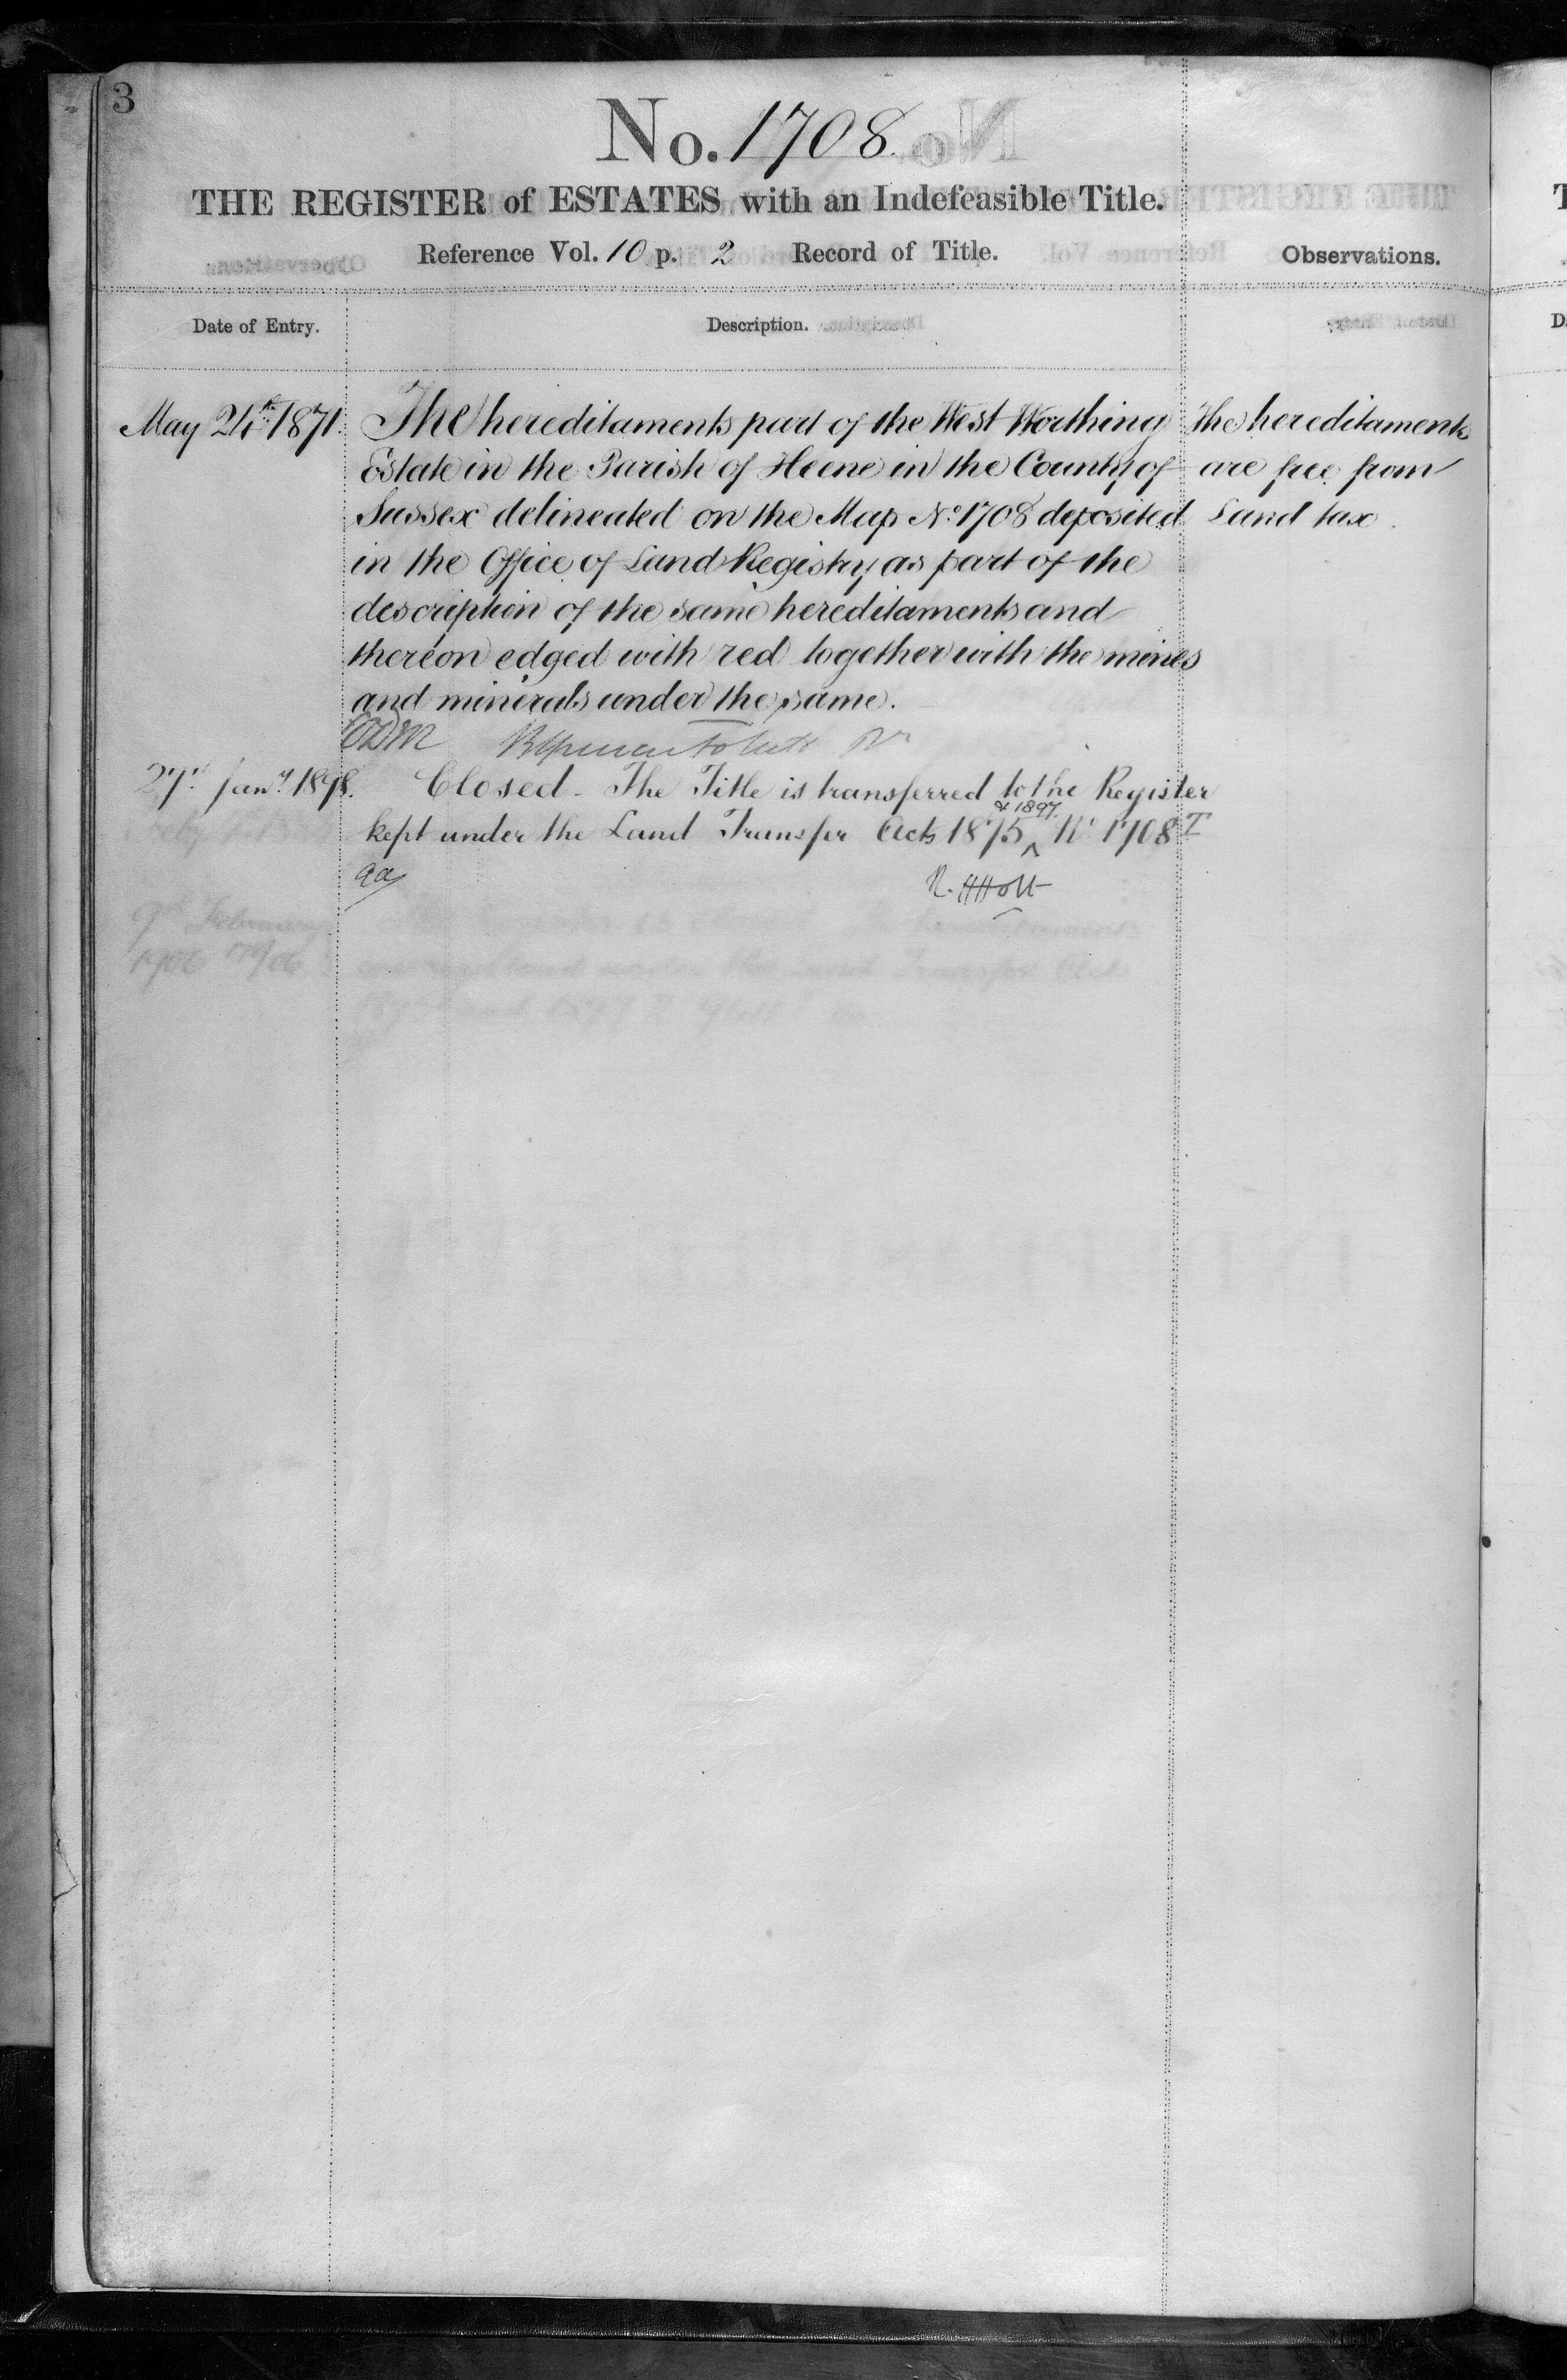 3
No. 1708.
THE REGISTER of ESTATES with an Indefeasible Title.
Reference Vol. 10 p. 2 Record of Title.
Observations.
Date of Entry.
Description.
May 24th 1871.
The hereditaments part of the West Worthing
Estate in the Parish of Heene in the County of
Sussex delineated on the Map No. 1708 deposited
in the Office of Land Registry as part of the
description of the same hereditaments and
thereon edged with red together with the mines
and minerals under the same.
The hereditaments
are free from
Land tax.
27th Jany. 1898.
Closed. The Title is transferred to the Register
kept under the Land Transfer Acts 1875 & 1897 No 1708 T
R. H Holt
9th February
1906